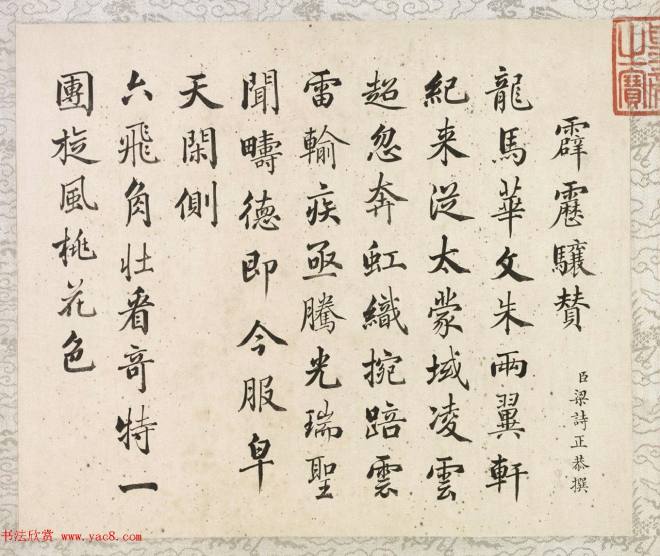 霹靂驤賛
臣梁詩正恭撰
龍馬華文朱兩翼軒
紀来從太蒙域凌雲
超忽奔虹織捥踣雲
雷輸疾亟騰光瑞聖
聞疇德即今服皁
天閑側
六飛角壯看奇特一
團旋風桃花色
之寶
书法欣赏 www.yac8.com